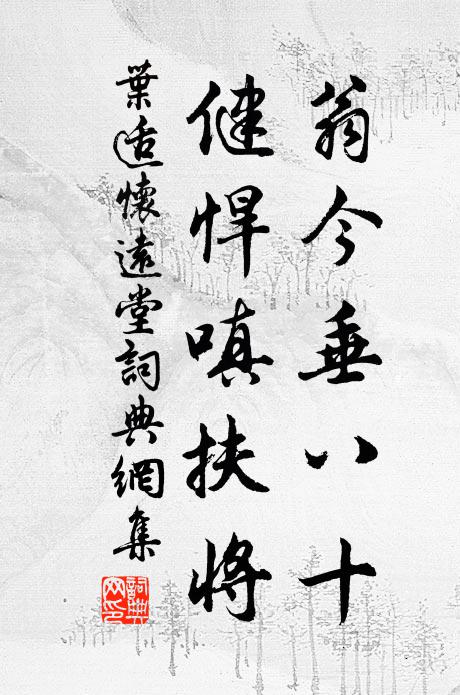 翁今垂八十
健悍嗔扶將
葉适懷遠堂詞典網集
詞典網印